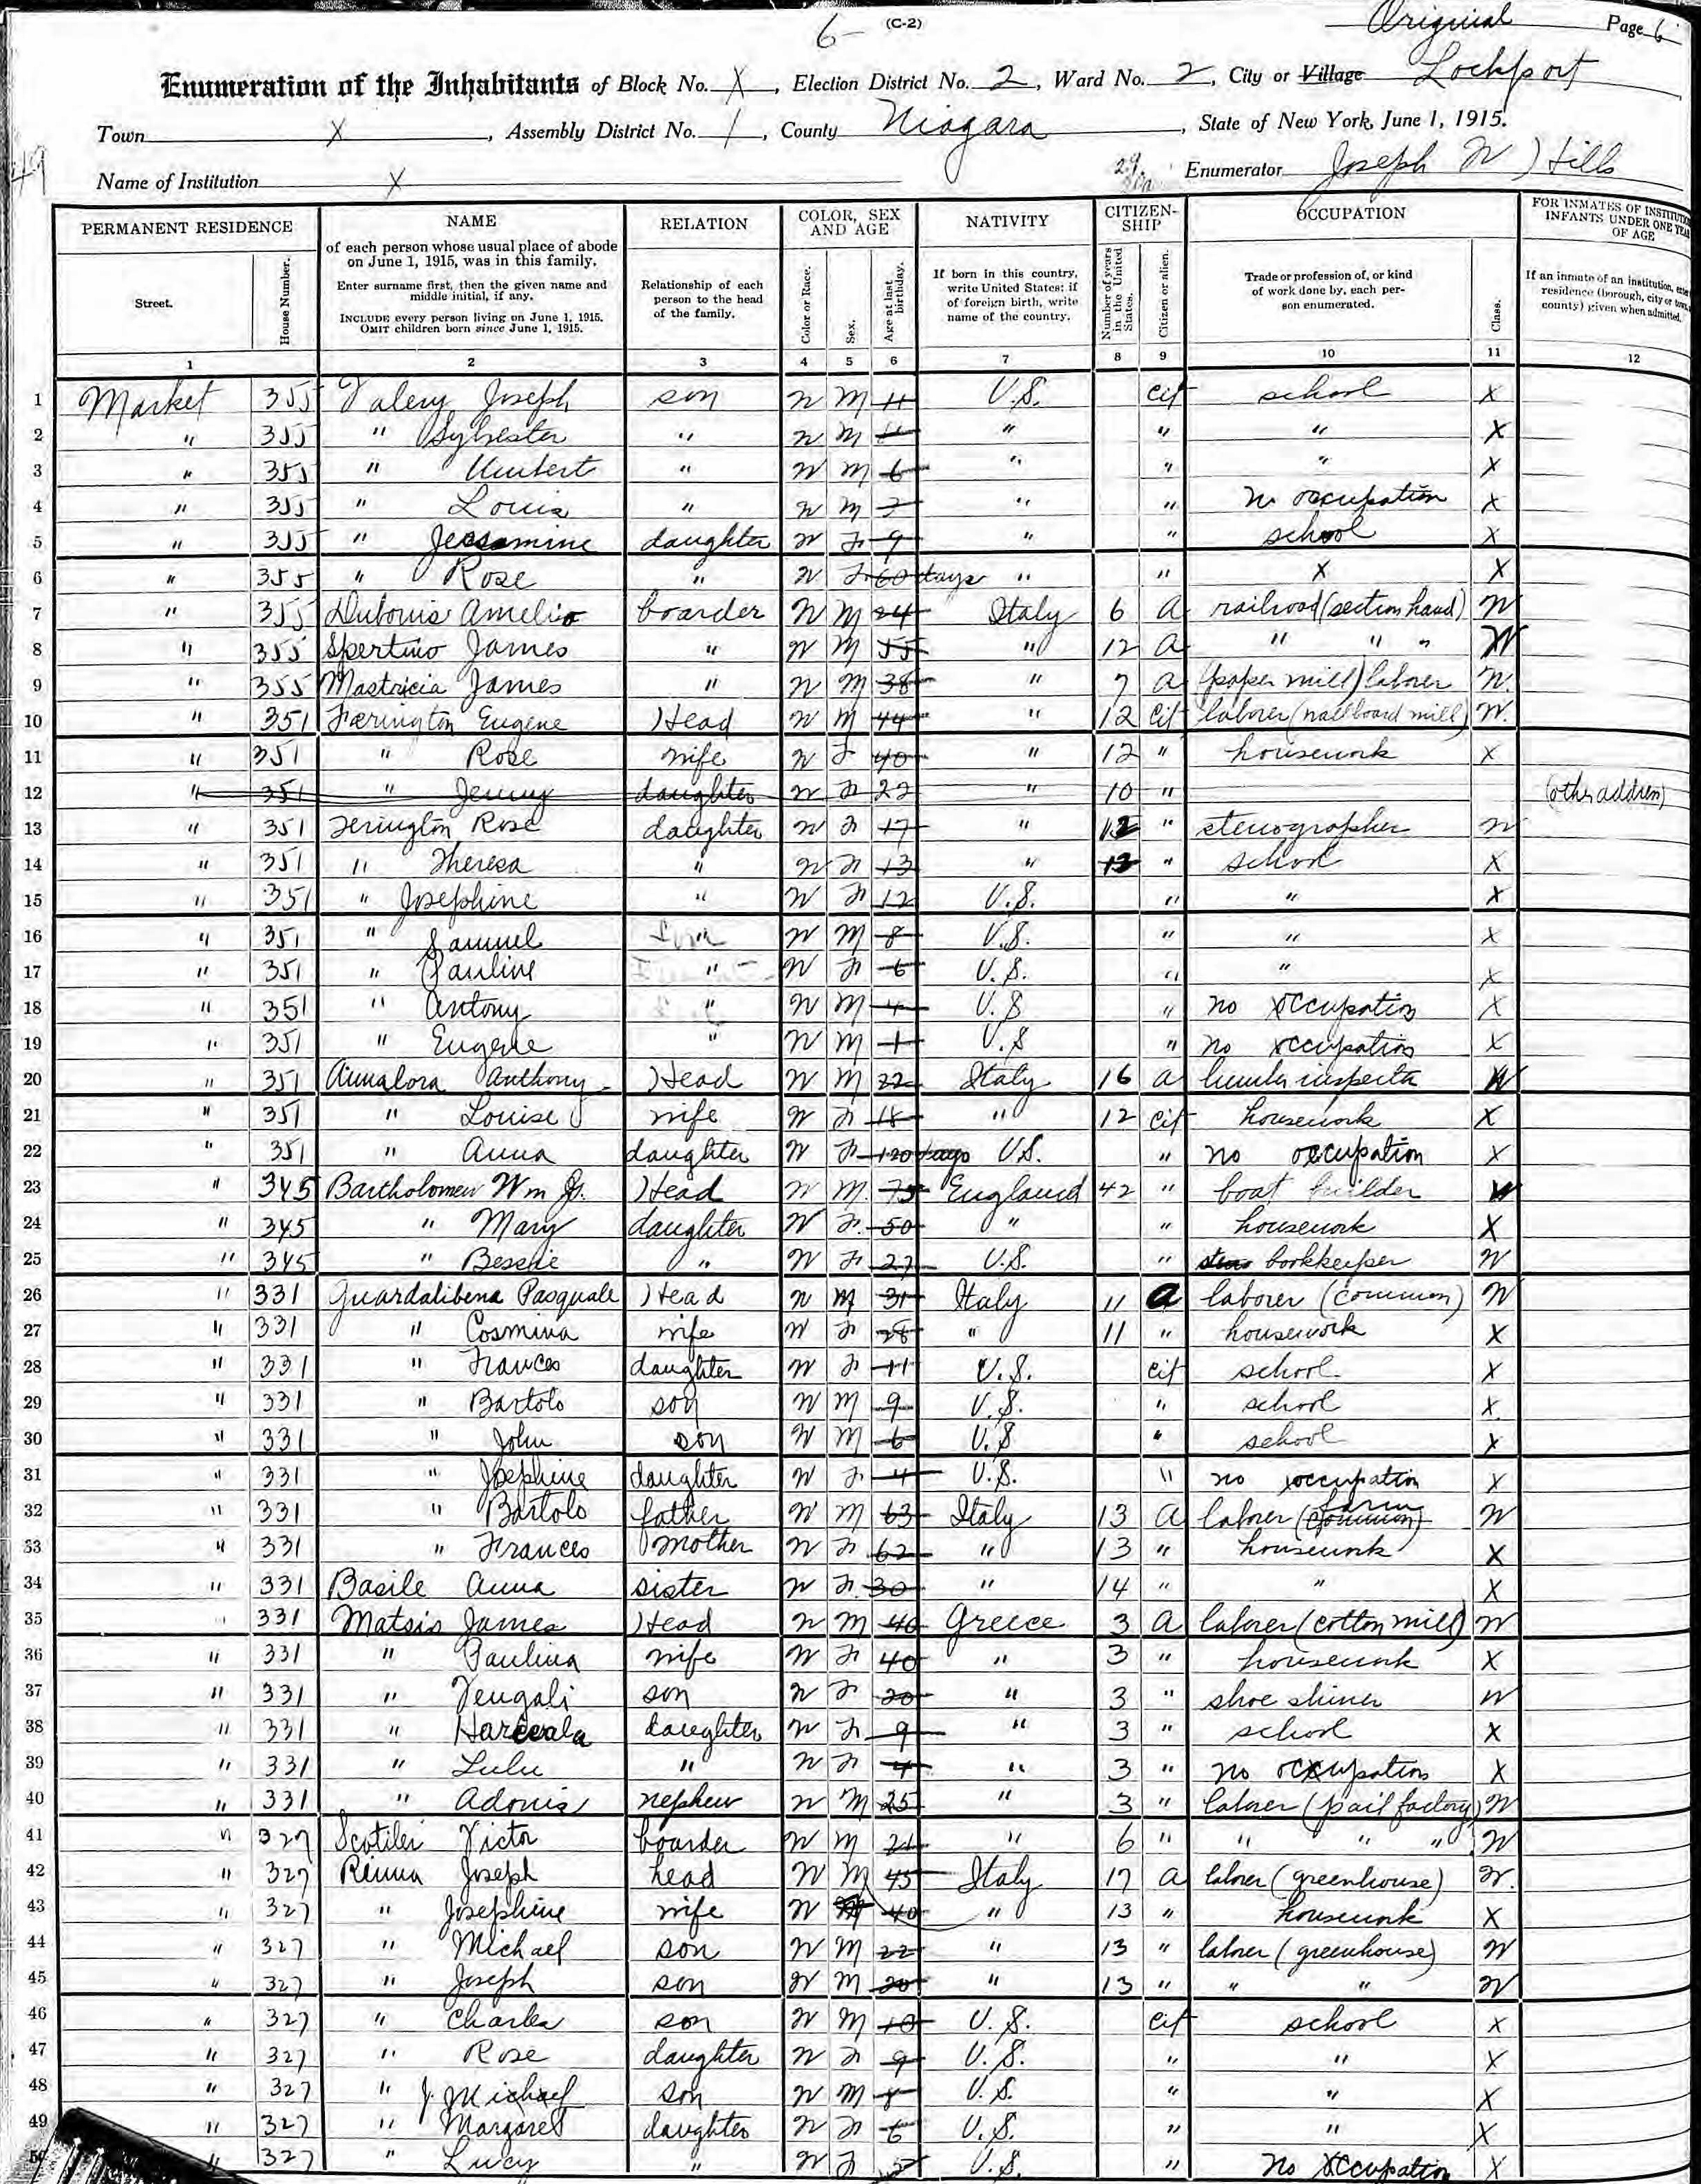 6- (C-2) Original Page 6
Enumeration of the Inhabitants of Block No. X, Election District No. 2, Ward No. 2, City or Village Lockport
Town X, Assembly District No. 1, County Niagara, State of New York, June 1, 1915.
49 Name of Institution X Enumerator Joseph W Hills
PERMANENT RESIDENCE NAME RELATION COLOR, SEX AND AGE NATIVITY CITIZENSHIP OCCUPATION FOR INMATES OF INSTITUTIONS INFANTS UNDER ONE YEAR OF AGE
Street. House Number. of each person whose usual place of abode on June 1, 1915, was in this family. Enter surname first, then the given name and middle initial, if any. INCLUDE every person living on June 1, 1915. OMIT children born since June 1, 1915. Relationship of each person to the head of the family. Color or Race. Sex. Age at last birthday. If born in this country, write United States; if of foreign birth, write name of the country. Number of years in the United States. Citizen or alien. Trade or profession of, or kind of work done by, each person enumerated. Class. If an inmate of an institution, residence (borough, city or town, county) given when admitted.
1 2 3 4 5 6 7 8 9 10 11 12
1 Market 355 Valery Joseph son W M 11 U.S. cit school X
2 " 355 " Sylvester " W M 11 " " " X
3 " 355 " Umbert " W M 6 " " " X
4 " 355 " Louis " W M " " no occupation X
5 " 355 " Jessamine daughter W F 9 " " school X
6 " 355 " Rose " W F 60 days " " X X
7 " 355 Dubouis Amelio boarder W M 24 Italy 6 a railroad (section hand) W
8 " 355 Spertino James " W M 55 " 12 a " " " W
9 " 355 Mastricia James " W M 38 " 7 a (paper mill) laborer W.
10 " 351 Ferington Eugene Head W M 44 " 12 cit laborer (wallboard mill) W.
11 " 351 " Rose wife W F 40 " 12 " housework X
12 " 351 " Jenny daughter W F 22 " 10 " (other address)
13 " 351 Ferington Rose daughter W F 17 " 12 " stenographer W
14 " 351 " Theresa " W F 13 " 13 " school X
15 " 351 " Josephine " W F 12 U.S. " " X
16 " 351 " Samuel Son W M 8 U.S. " " X
17 " 351 " Pauline " W F 6 U.S. " " X
18 " 351 " Antony " W M 4 U.S " no occupation X
19 " 351 " Eugene " W M 1 U.S " no occupation X
20 " 351 Annalora Anthony Head W M 22 Italy 16 a lumber inspector W
21 " 351 " Louise wife W F 18 " 12 cit housework X
22 " 351 " Anna daughter W F 120 days U.S. " no occupation X
23 " 345 Bartholomew Wm Jr. Head W M. 75 England 42 " boat builder W
24 " 345 " Mary daughter W F. 50 " " housework X
25 " 345 " Bessie " W F 27 U.S. " sten bookkeeper W
26 " 331 Guardalibena Pasquale Head W M 31 Italy 11 a laborer (common) W
27 " 331 " Cosmina wife W F 28 " 11 " housework X
28 " 331 " Frances daughter W F 11 U.S. cit school X
29 " 331 " Bartolo son W M 9 U.S. " school X
30 " 331 " John son W M 6 U.S " school X
31 " 331 " Josephine daughter W F 4 U.S. " no occupation X
32 " 331 " Bartolo father W M 63 Italy 13 a laborer (common) farm W
33 " 331 " Frances mother W F 62 " 13 " housework X
34 " 331 Basile Anna sister W F. 30 " 14 " " X
35 " 331 Matsis James Head W M 40 Greece 3 a laborer (cotton mill) W
36 " 331 " Paulina wife W F 40 " 3 " housework X
37 " 331 " Vengali son W F 20 " 3 " shoe shiner W
38 " 331 " daughter W F 9 " 3 " school X
39 " 331 " Lulu " W F 4 " 3 " no occupation X
40 " 331 " Adonis nephew W M 25 " 3 " laborer (pail factory) W
41 " 327 Scotiles Victor boarder W M 21 " 6 " " " " W
42 " 327 Rinna Joseph head W M 45 Italy 17 a laborer (greenhouse) W.
43 " 327 " Josephine wife W 40 " 13 " housework X
44 " 327 " Michael son W M 22 " 13 " laborer (greenhouse) W
45 " 327 " Joseph son W M 20 " 13 " " " W
46 " 327 " Charles son W M 10 U.S. cit school X
47 " 327 " Rose daughter W F 9 U.S. " " X
48 " 327 " J. Michael son W M 8 U.S. " " X
49 " 327 " Margaret daughter W F 6 U.S. " " X
50 " 327 " Lucy " W F 5 U.S. " no occupation X